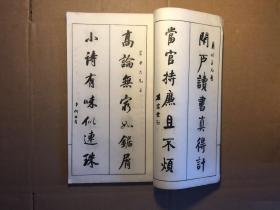 閉戶讀書真得計
當官持廉且不煩
高論無窮如鋸屑
小詩有味似連珠